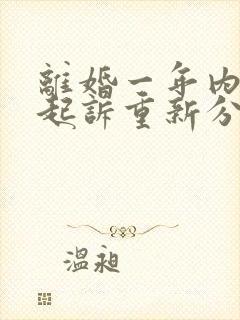 離婚一年內
起訴重新分
溫昶